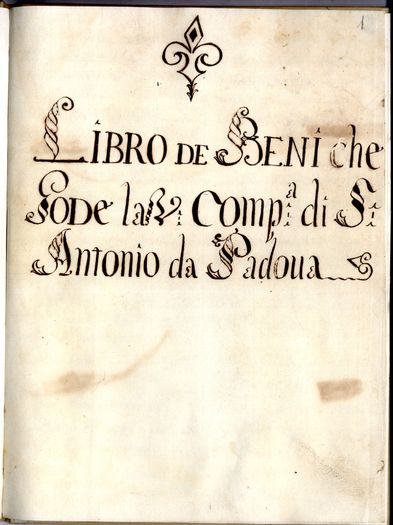 1
LIBRO DE BENI che
GODE la V. Comp.a di S.
Antonio da Padoua